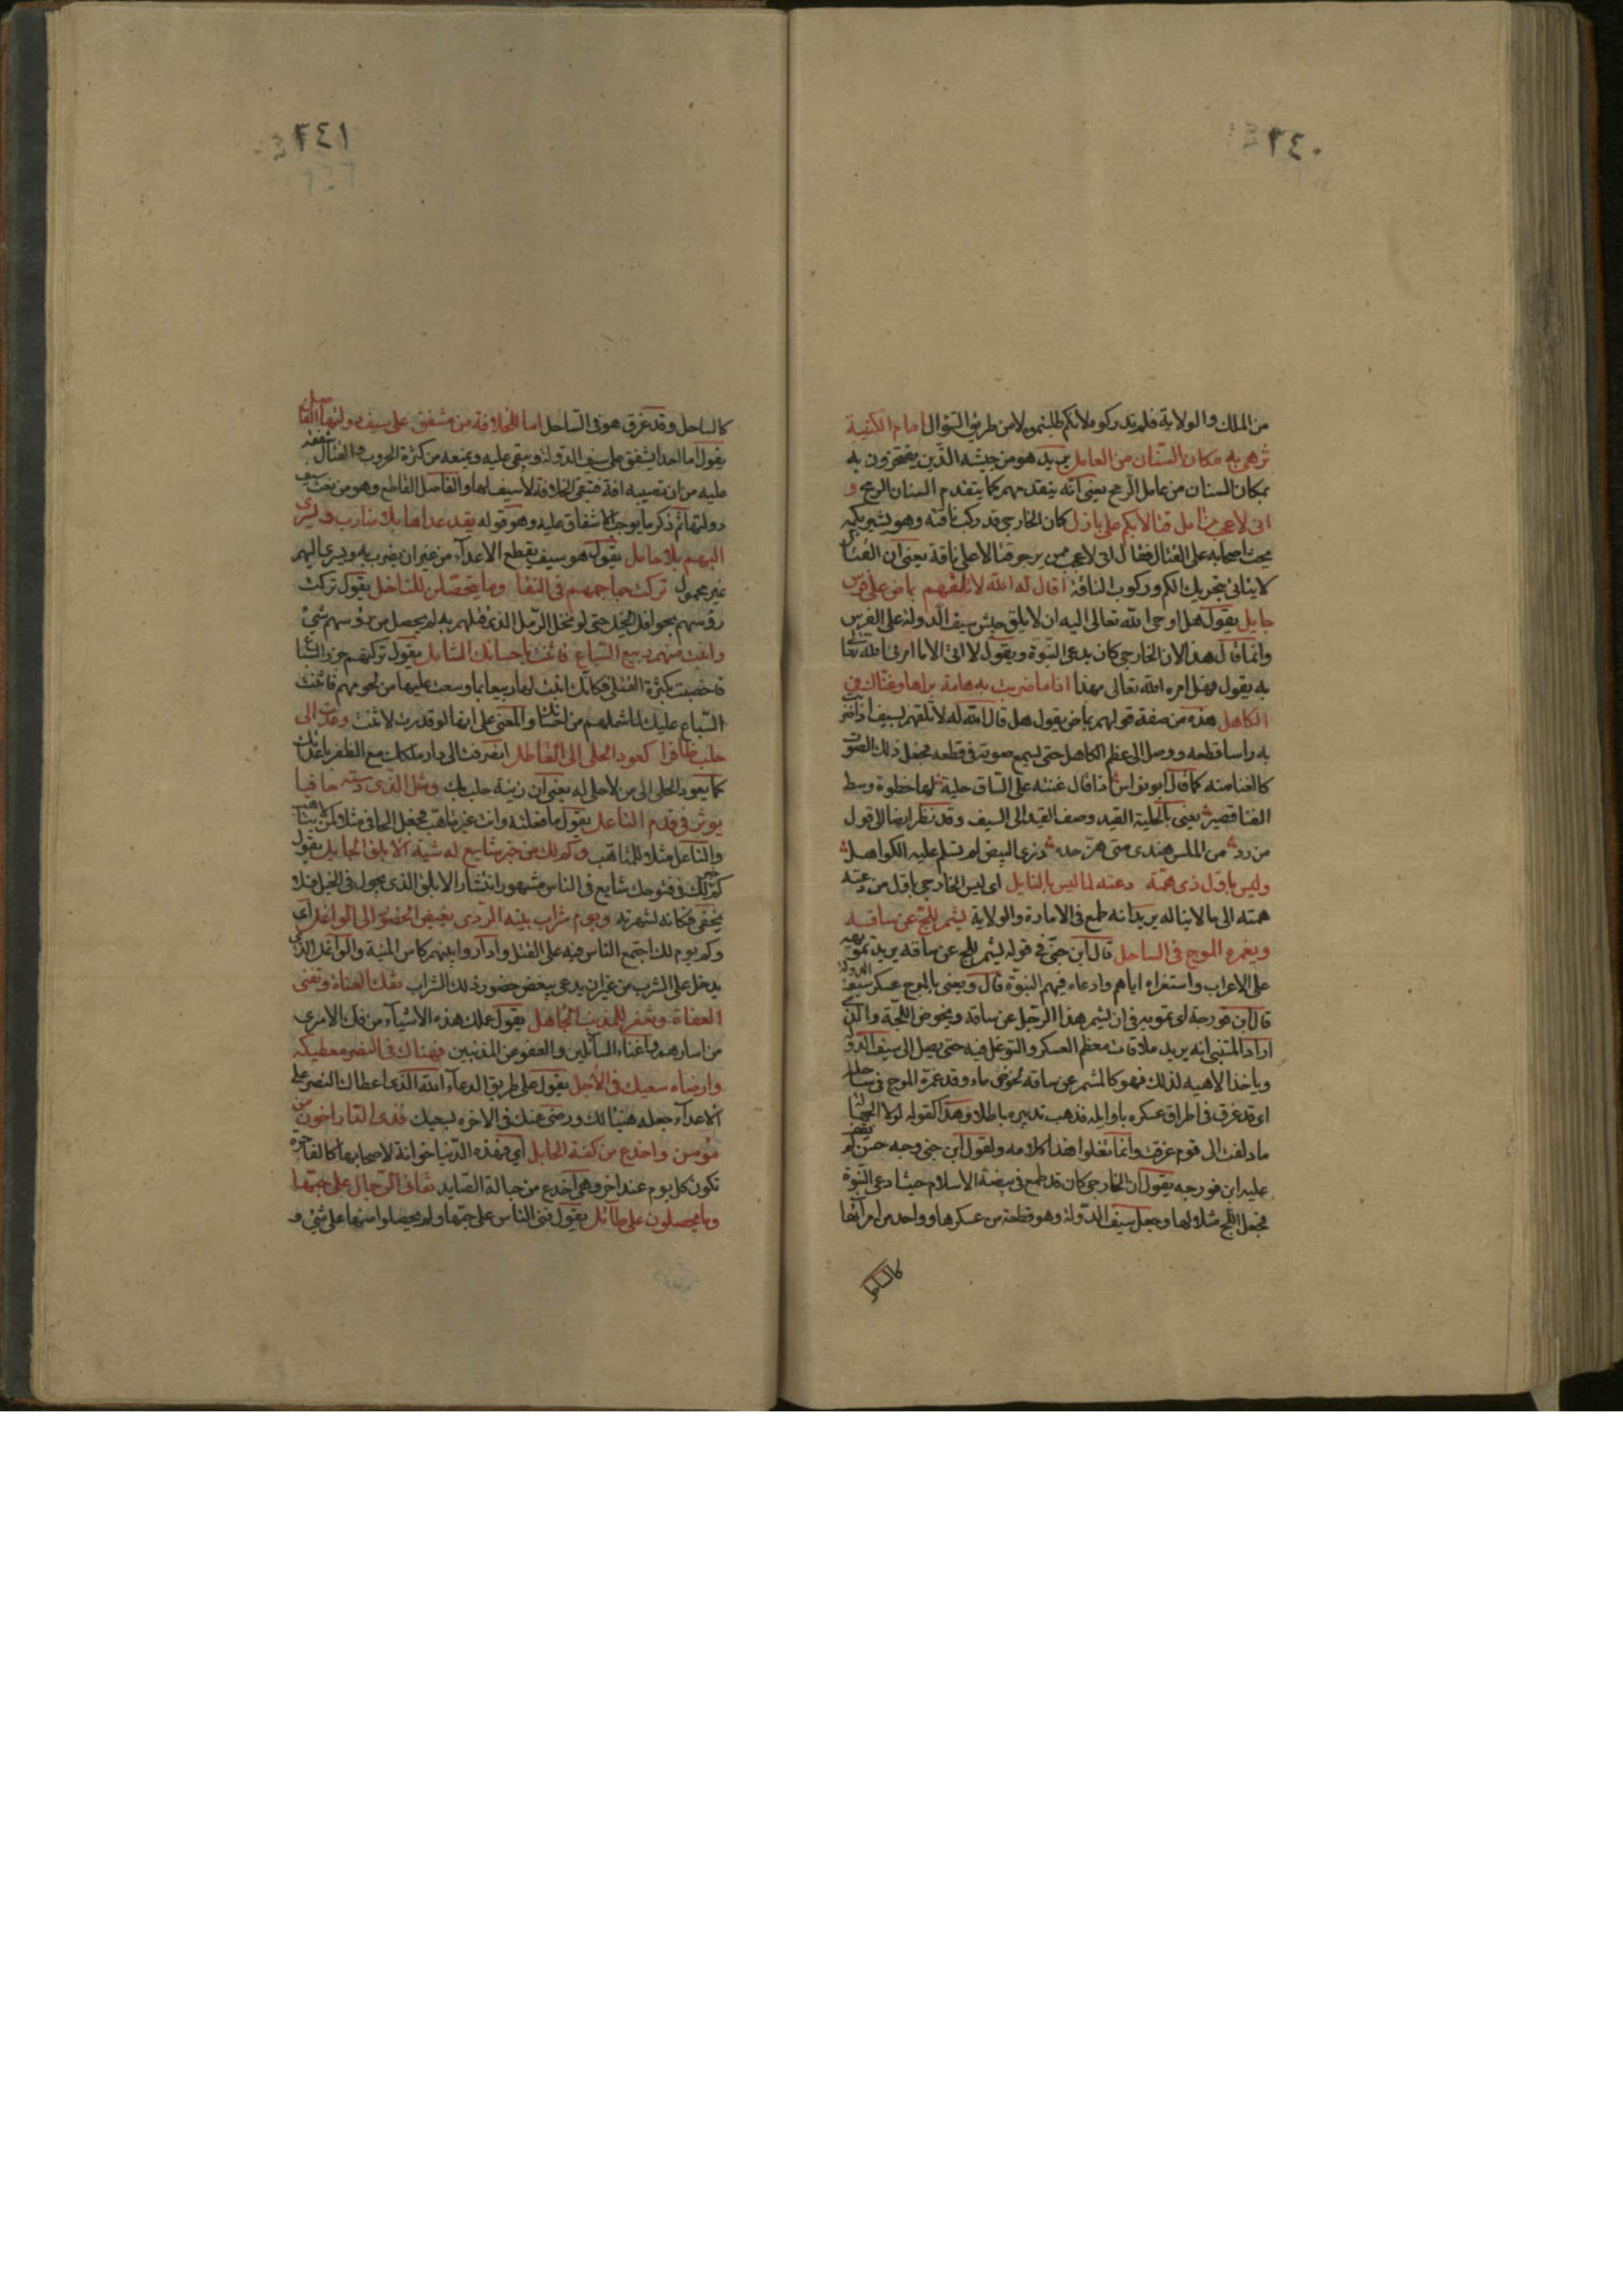 ٢٤٠
من الملك والولاية فلم تدركوه لانكم طلبتموه لا من طريق السؤال امام الكتيبة
تزهى به مكان السنان من العامل يريد هو من جيشه الذين يفتخرون به
بمكان السنان من عامل الرمح يعنى انه يتقدمهم كما يتقدم السنان الرمح و
انى لاعجب من آمل قتالا بكم على بازل كان الخارجى قد ركب ناقة وهو يشير بكمه
يحث اصحابه على القتال فقال انى لاعجب ممن يرجو قتالا على ناقة يعنى ان القتال
لا يتاتى بتحريك الكم وركوب الناقة اقال له الله لا تلقهم بماض على فرس
حايل يقول هل اوحى الله تعالى اليه ان لا يلق جيش سيف الدولة على الفرس
وانما قال هذا لان الخارجى كان يدعى النبوة ويقول لا اتى الا ما امرنى الله تعالى
به يقول فهل امره الله تعالى بهذا اذا ما ضربت به هامة براها وغناك فى
الكاهل هذه من صفة قولهم بماض يقول هل قال الله له لا تلقهم بسيف اذا ضرب
به راسا قطعه ووصل الى عظم الكاهل حتى يسمع صوته فى قطعه فجعل ذلك الصوت
كالغنا منه كما قال ابو نواس اذا قال غنته على الساق حلية لها خطوة وسط
الفنا قصير يعنى بالحلية القيد وصف القيد الى السيف وقد نظر ايضا الى قول
مزرد من الملس هندى متى هز حده ذرى البيض لم تسلم عليه الكواهل
وليس باول ذى همة دعته لما ليس بالنايل اى ليس الخارجى باول من دعته
همته الى ما لا يناله يريد انه طمع فى الامارة والولاية يشمر للج عن ساقه
ويغمره الموج فى الساحل قال ابن جنى فى قوله يشمر للج عن ساقه يريد تمويهه
على الاعراب واستغراه اياهم وادعاه فيهم النبوة قال ويعنى بالموج عسكر سيف الدولة
قال ابن فورجة اى تمويه فى ان يشمر هذا الرجل عن ساقه ويخوض اللجة والذى
اراد المتنبى انه يريد ملاقات معظم العسكر والتوغل فيه حتى يصل الى سيف الدولة
وياخذ الاهبه لذلك فهو كالمشمر عن ساقه لخوض ماء وقد غمره الموج فى ساحله
اى قد غرق فى اطراق عسكره باوايله فذهب تدبيره باطلا وهذا كقوله لولا الجهالة
ما دلفت الى قوم غرقت وانما تفلوا هذا كلامه ولقول ابن جنى وجه حسن لم يقف
عليه ابن فورجه يقول ان الخارجى كان قد طمع فى بيضة الاسلام حيث ادعى النبوة
فجعل اللج مثلا لها وجعل سيف الدولة وهو قطعة من عسكرها وواحد من امرآئها
كالساحل
٢٤١
كالساحل وقد غرق هو فى الساحل اما للخلافة من مشفق على سيف دولتها الفاصل
يقول اما احد يشفق على سيف الدولة ويبقى عليه ويمنعه من كثرة الحروب والقتال شفقة
عليه من ان تصيبه افة فتبقى الخلافة لا سيف لها والفاصل القاطع وهو من نعت سيف
دولتها ثم ذكر ما يوجب الاشفاق عليه وهو قوله يقد عداها بلا ضارب ويسرى
اليهم بلا حامل يقول هو سيف يقطع الاعدآء من غير ان يضرب به ويسرى اليهم
غير محمول تركت جماجمهم فى النقا وما يتحصلن للناخل يقول تركت
رؤسهم بحوافر الخيل حتى لو نخل الرمل الذى قتلهم به لم يحصل من رؤسهم شئ
وانبت منهم ربيع السباع فاثنت باحسانك الشامل يقول تركتهم جزر السباع
فاخصبت بكثرة القتلى فكانك انبت لها ربيعا بما وسعت عليها من لحومهم فاثنت
السباع عليك لما شملهم من احسانك والمعنى على انها لو قدرت لاثنت وعدت الى
حلب ظافرا كعود الحلى الى العاطل انصرفت الى دار ملكك مع الظفر باعدائك
كما يعود الحلى الى من لا حلى له يعنى ان زينة حلب بك ومثل الذى دسته حافيا
يوثر فى قدم الناعل يقول ما فعلته وانت غير متاهب فجعل الحافى مثلا لمن لا يتاهب
والناعل مثلا للمتاهب وكم لك من خبر شايع له شية الابلق الجايل يقول
كم لك فى فتوحك شايع فى الناس مشهور انتشار الابلق الذى يجول فى الخيل فلا
يخفى مكانه لشهرته ويوم شراب بنيه الردى بغيض الحضور الى الواغل اى
وكم يوم لك اجتمع الناس فيه على القتل وادار وابينهم كاس المنية والواغل الذى
يدخل على الشرب من غير ان يدعى يبغض حضور ذلك الشراب تفك العناة وتغنى
العفاة وتغفر للمذنب الجاهل يقول عملك هذه الاشيآء من فك الاسرى
من اسارهم واغناء السآئلين والعفو عن المذنبين فهناك فى النصر معطيكه
وارضاه سعيك فى الآجل يقول على طريق الدعآء الله الذى اعطاك النصر على
الاعدآء جعله هنيئا لك ورضى عنك فى الاخره لسعيك فذى الدار اخون من
مومس واخدع من كفة الحابل اى فهذه الدنيا خوانة لاصحابها كالفاجرة
تكون كل يوم عند اخر وهى اخدع من حبالة الصايد تفانى الرجال على حبها
وما يحصلون على طائل يقول فنى الناس على حبها ولم يحصلوا منها على شئ و